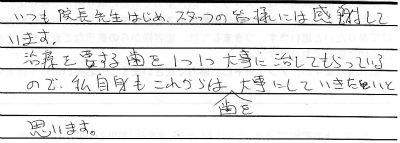 いつも院長先生はじめ、スタッフの皆様には感謝して
います。
治療を要する歯を1つ1つ大事に治してもらっている
ので、私自身もこれからは大事にしていきたいと
歯を
思います。